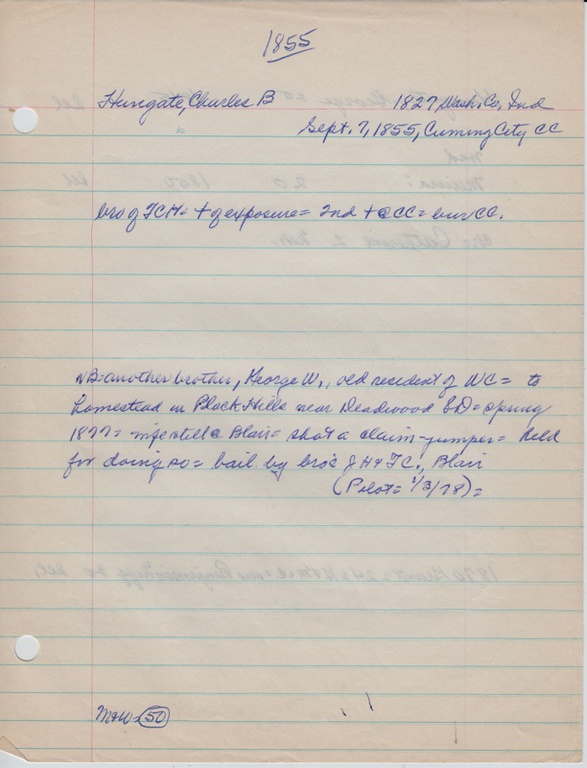 1855
Hungate, Charles B 1827 Wash. Co, Ind
Sept. 7, 1855, Cuming City CC
bro of TCH= + of exposure= 2nd + @ CC= bur CC.
NB=another brother, George W., old resident of WC= to
homestead in Black Hills near Deadwood SD= spring
1877= wife still @ Blair= shot a claim-jumper= held
for doing so= bail by bro's JH+TC., Blair
(Pilot= 1/3/78)=
M+W- 50